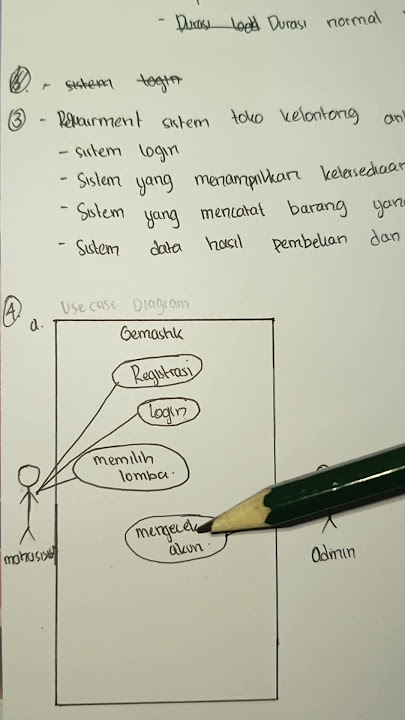 - Durasi lodd Durasi normal
- sistem login
③ - Requirment sistem toko kelontong
- sistem login
- Sistem yang menampilkan ketersediaan
- Sistem yang mencatat barang yang
- Sistem data hasil pembelian dan
④ Use case Diagram
a.
Gemastik
Registrasi
login
memilih
lomba.
mengecek
akun.
mahasiswa
admin